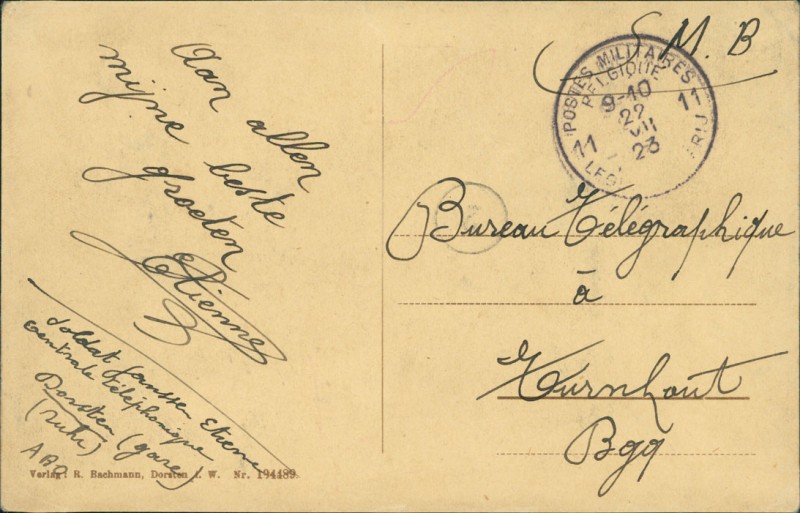 Aan allen
mijne beste
groeten
Etienne
Soldat Janssen Etienne
Centrale téléphonique
Dorsten (gare)
(Ruhr)
Verlag: R. Bachmann, Dorsten i. W. Nr. 194489.
S. M. B
POSTES MILITAIRES
BELGIQUE
9-10
22
VII
23
11 11
Bureau Télégraphique
à
Turnhout